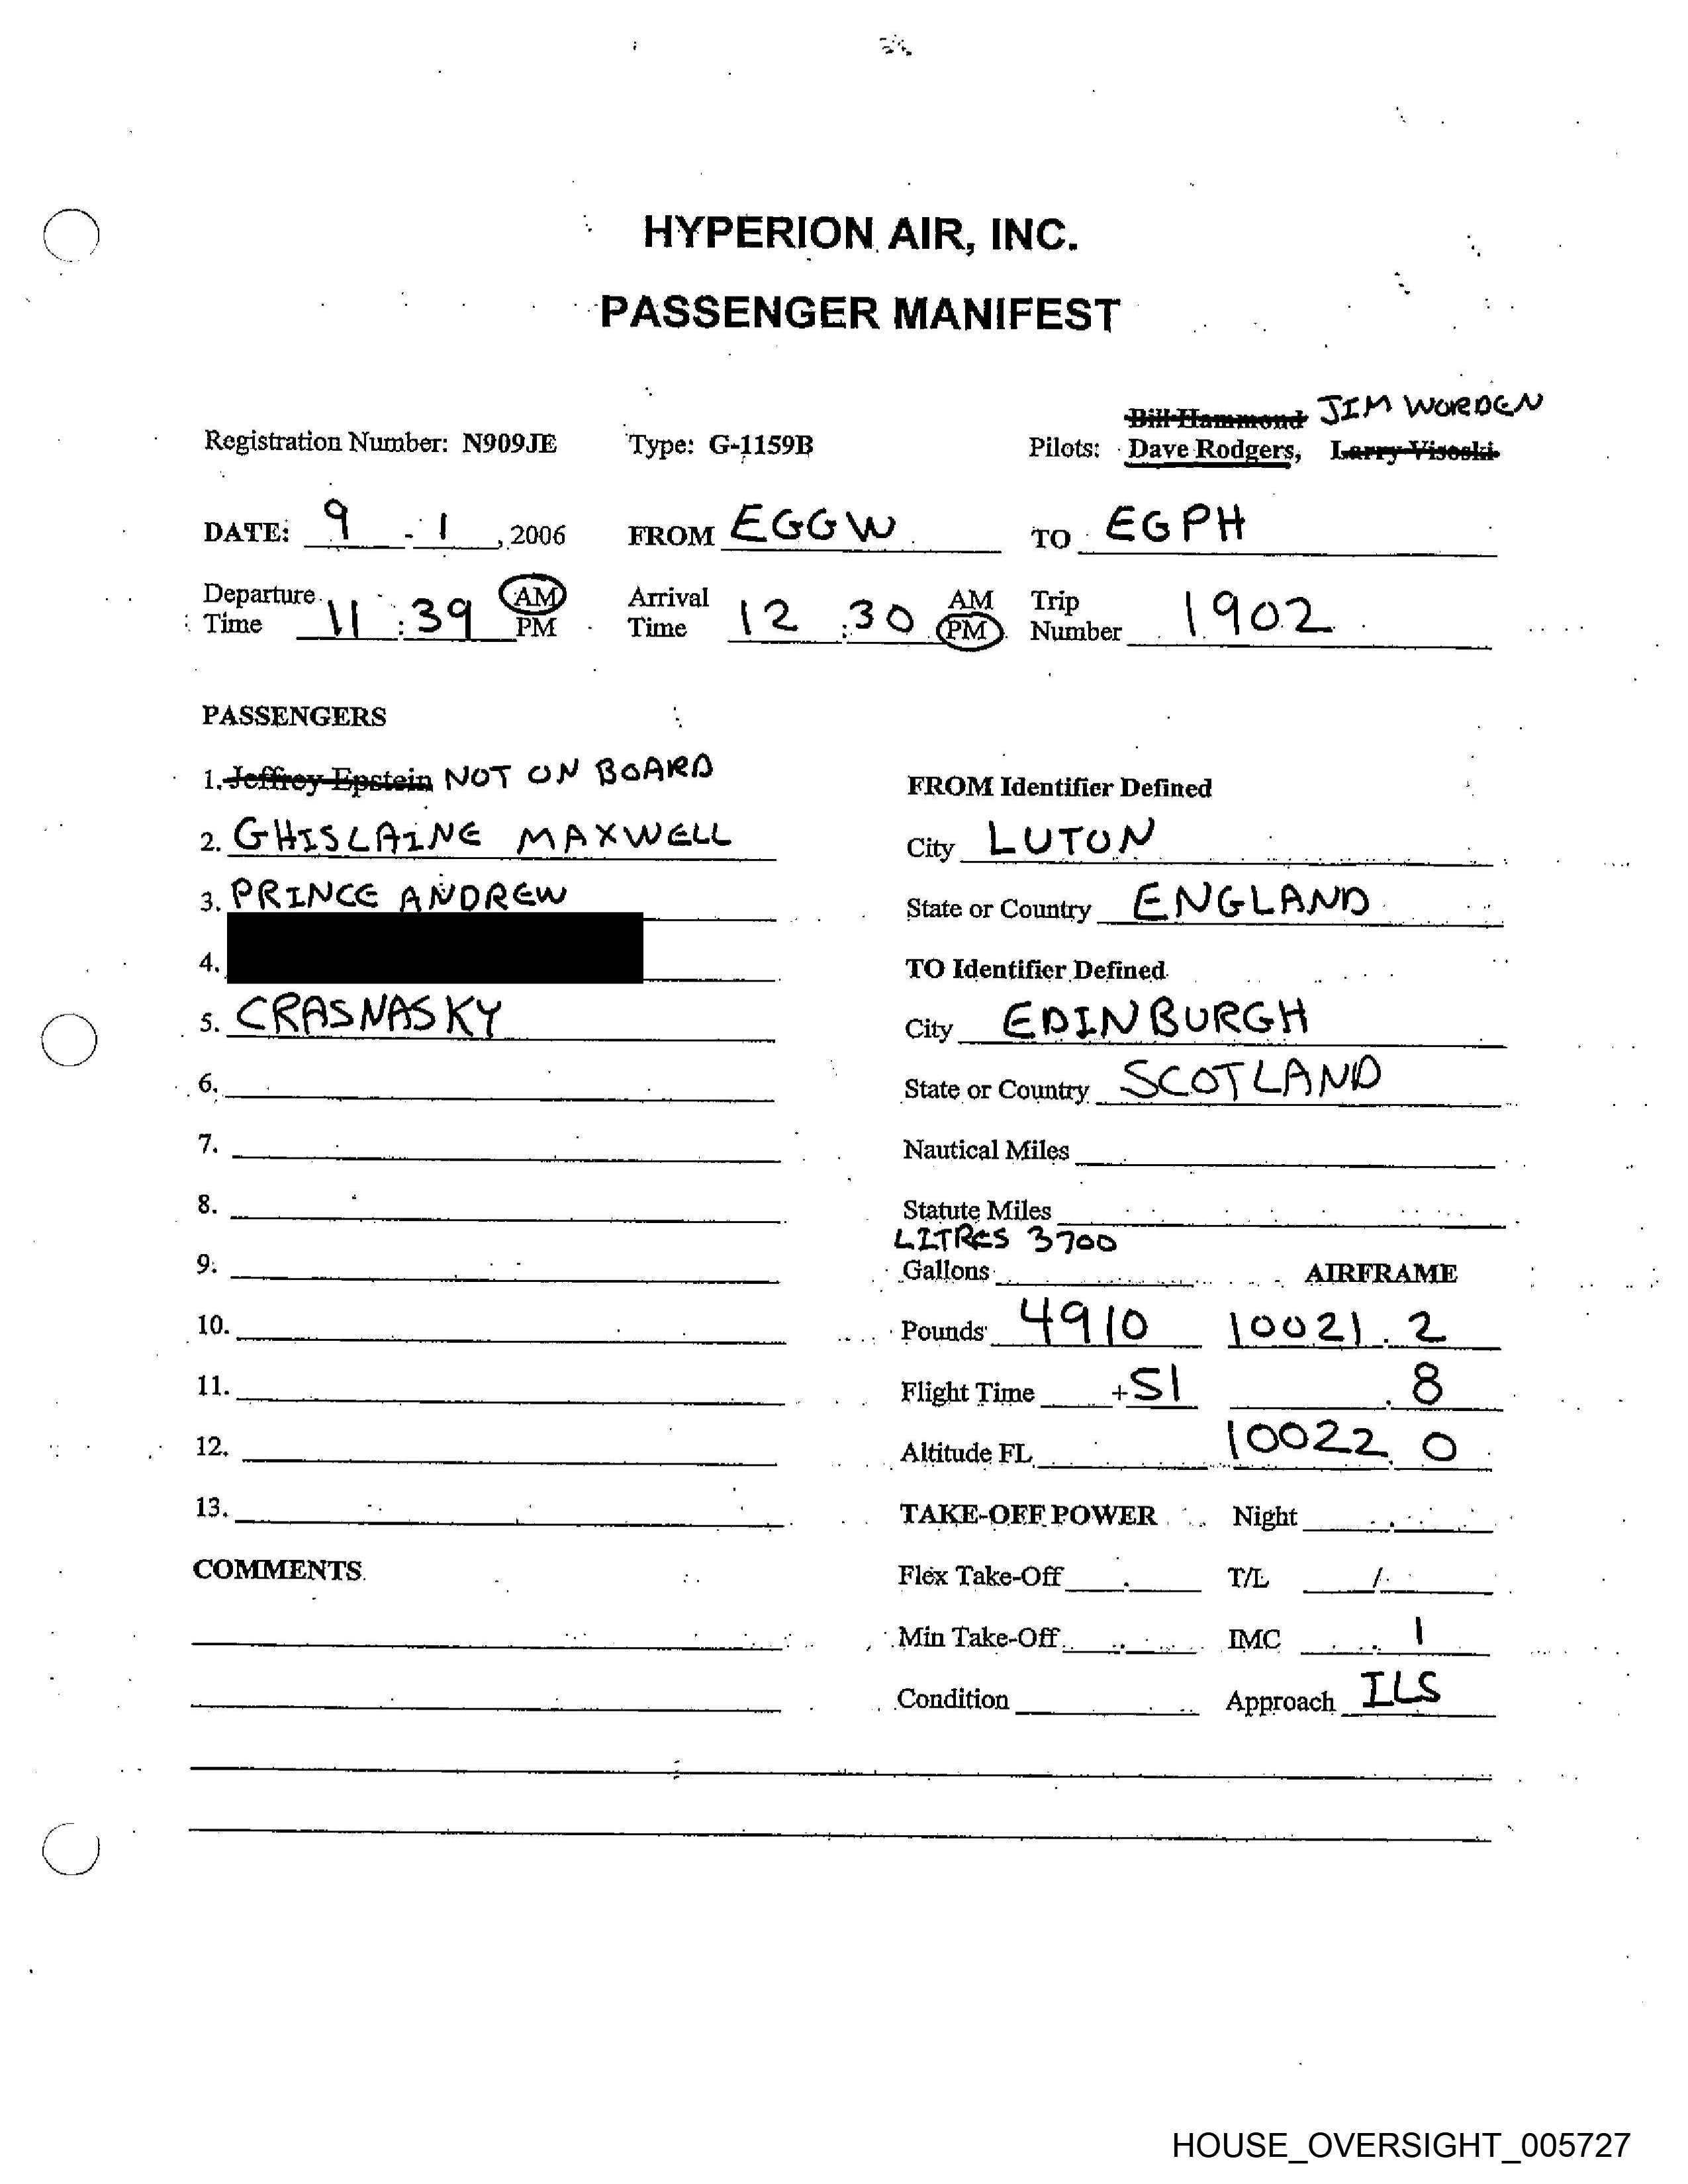 HYPERION AIR, INC.
PASSENGER MANIFEST
Bill Hammond JIM WORDEN
Registration Number: N909JE Type: G-1159B Pilots: Dave Rodgers, Larry Visoski
DATE: 9 - 1, 2006 FROM EGGW TO EGPH
Departure Time 11:39 AM PM Arrival Time 12:30 AM PM Trip Number 1902
PASSENGERS
1. Jeffrey Epstein NOT ON BOARD
FROM Identifier Defined
2. GHISLAINE MAXWELL
City LUTON
3. PRINCE ANDREW
State or Country ENGLAND
4.
TO Identifier Defined
5. CRASNASKY
City EDINBURGH
6.
State or Country SCOTLAND
7.
Nautical Miles
8.
Statute Miles
LITRES 3700
9.
Gallons AIRFRAME
10.
Pounds 4910 10021.2
11.
Flight Time +51 .8
12.
Altitude FL 10022.0
13.
TAKE-OFF POWER Night
COMMENTS
Flex Take-Off T/L /
Min Take-Off IMC .1
Condition Approach ILS
HOUSE_OVERSIGHT_005727